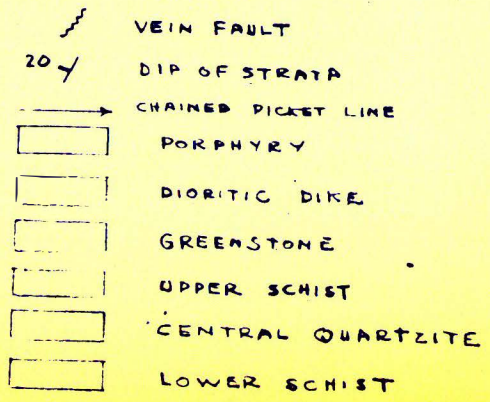 VEIN FAULT
20 DIP OF STRATA
CHAINED PICKET LINE
PORPHYRY
DIORITIC DIKE
GREENSTONE
UPPER SCHIST
CENTRAL QUARTZITE
LOWER SCHIST